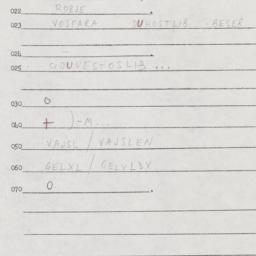 022 ROBJE
023 VOSFARA DUHOSTLIB BESER
024 –
025 ODUVESTOSLIB ...
030 O
040 + )-M...
050 VAJSL / VAJSLEN
060 GELXL /
070 O